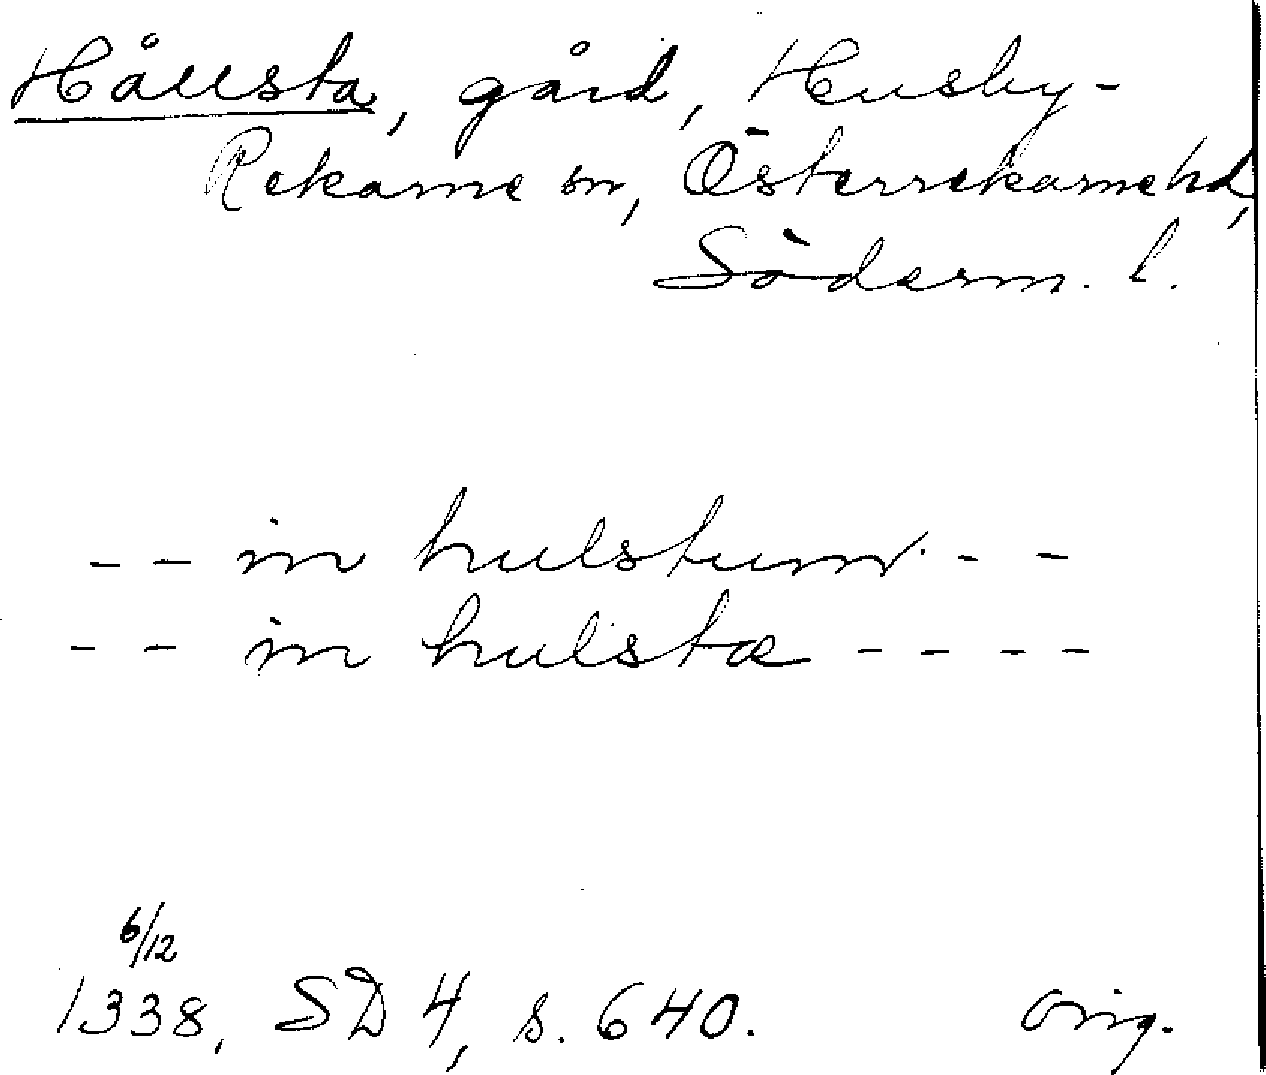 Hållsta, gård, Husby-
Rekarne sn, Österrekarne hd,
Söderm. l.
-- in hulstum - -
-- in hulstæ ----
6/12
1338, SD 4, s. 640. orig.